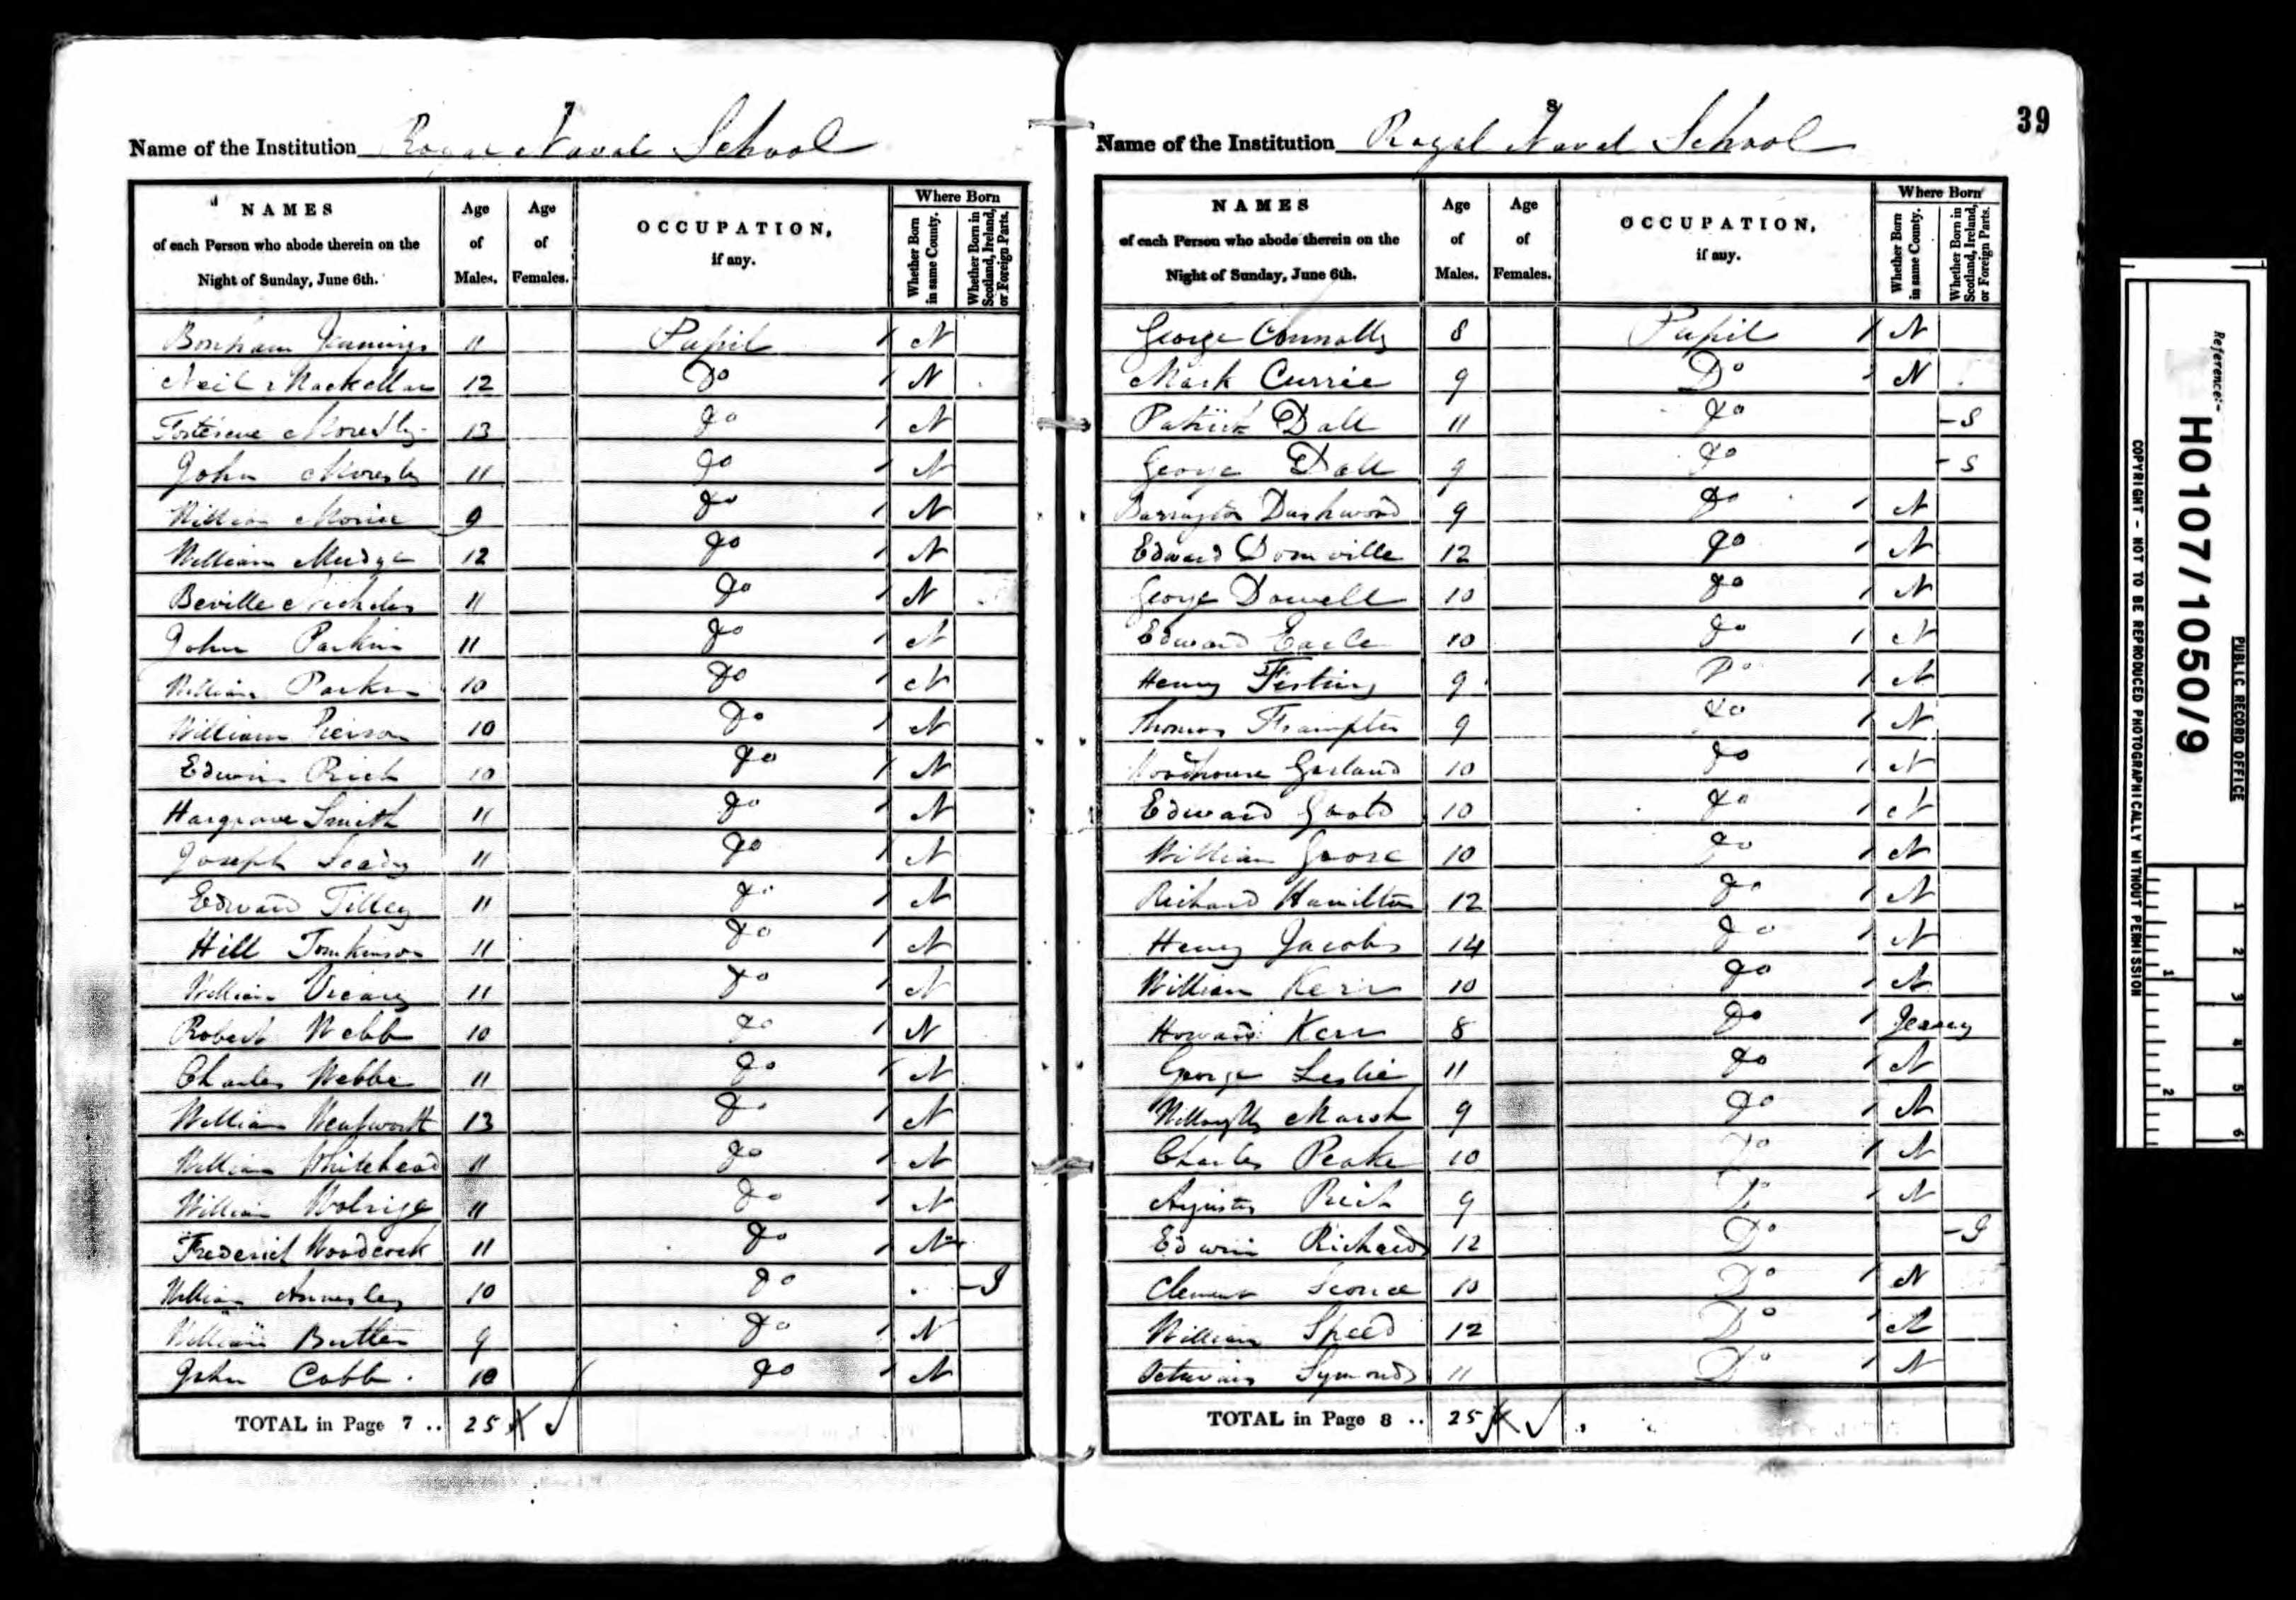 7
Name of the Institution Royal Naval School
NAMES of each Person who abode therein on the Night of Sunday, June 6th. Age of Males. Age of Females. OCCUPATION, if any. Where Born Whether Born in same County. Whether Born in Scotland, Ireland, or Foreign Parts.
Bonham Jennings 11 Pupil N
Neil Mackellar 12 Do N
Fortescue Moresby 13 Do N
John Moresby 11 Do N
William Morice 9 Do N
William Mudge 12 Do N
Beville Nicholas 11 Do N
John Parkin 11 Do N
William Parkin 10 Do N
William Pierson 10 Do N
Edwin Rich 10 Do N
Hargrave Smith 11 Do N
Joseph 11 Do N
Edward Tilley 11 Do N
Hill Tomkinson 11 Do N
William Vicary 11 Do N
Robert Webb 10 Do N
Charles Webbe 11 Do N
William Wentworth 13 Do N
William Whitehead 11 Do N
William Wolrige 11 Do N
Frederick Woodcock 11 Do N
William Annesley 10 Do - I
William Butler 9 Do N
John Cobb 10 Do N
TOTAL in Page 7 .. 25
8
39
Name of the Institution Royal Naval School
NAMES of each Person who abode therein on the Night of Sunday, June 6th. Age of Males. Age of Females. OCCUPATION, if any. Where Born Whether Born in same County. Whether Born in Scotland, Ireland, or Foreign Parts.
George Connolly 8 Pupil N
Mark Currie 9 Do N
Patrick Dall 11 Do - S
George Dall 9 Do - S
Barrington Dashwood 9 Do N
Edward Domville 12 Do N
George Dowell 10 Do N
Edward Earle 10 Do N
Henry Festing 9 Do N
Thomas Frampton 9 Do N
Woodhouse Garland 10 Do N
Edward 10 Do N
William Goose 10 Do N
Richard Hamilton 12 Do N
Henry Jacobs 14 Do N
William Kerr 10 Do N
Howard Kerr 8 Do Jersey
George Leslie 11 Do N
Willoughby Marsh 9 Do N
Charles Peake 10 Do N
Augustus Rich 9 Do N
Edwin Richards 12 Do - I
Clement Sconce 10 Do N
William Speed 12 Do N
Symonds 11 Do N
TOTAL in Page 8 .. 25
Reference:-
HO107/1050/9
PUBLIC RECORD OFFICE
COPYRIGHT - NOT TO BE REPRODUCED PHOTOGRAPHICALLY WITHOUT PERMISSION
1
2
1 2 3 4 5 6